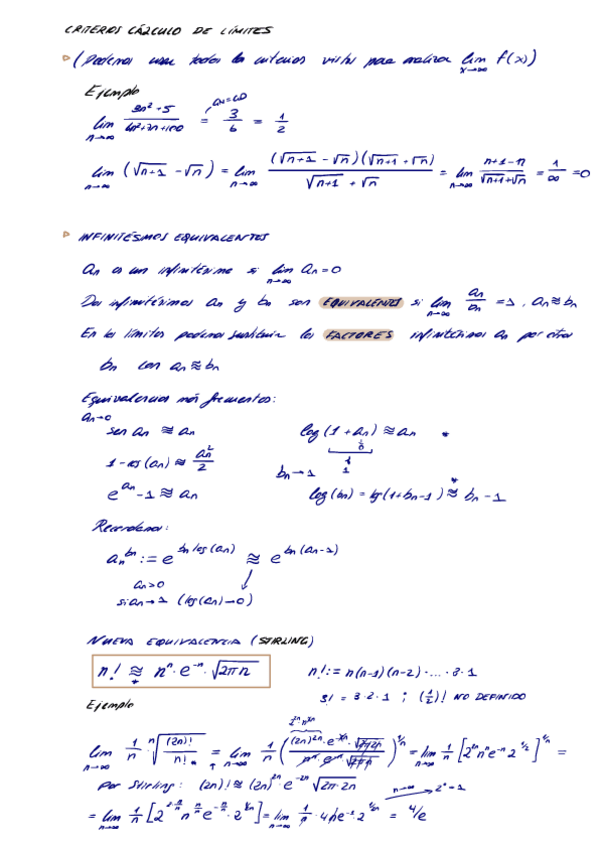 CRITERIOS CÁLCULO DE LÍMITES
(Podemos usar todos los criterios vistos para analizar lim x→∞ f(x))
Ejemplo
lim n→∞ (3n²+5)/(6n²+7n+100) = 3/6 = 1/2
lim n→∞ (√n+1 - √n) = lim n→∞ (√n+1 - √n)(√n+1 + √n) / √n+1 + √n = lim n→∞ n+1-n / √n+1+√n = 1/∞ = 0
INFINITÉSIMOS EQUIVALENTES
an es un infinitésimo si lim n→∞ an = 0
Dos infinitésimos an y bn son EQUIVALENTES si lim n→∞ an/bn = 1, an ≈ bn
En los límites podemos sustituir los FACTORES infinitésimos an por otros
bn con an ≈ bn
Equivalencias más frecuentes:
an→0
sen an ≈ an log(1+an) ≈ an *
1-cos(an) ≈ an²/2 bn→1
e^an -1 ≈ an log(bn) = log(1+bn-1) ≈ bn-1
Recordamos:
an^bn := e^(bn log(an)) ≈ e^(bn(an-1))
an>0
si an→1 (log(an)→0)
NUEVA EQUIVALENCIA (STIRLING)
n! ≈ nⁿ·e⁻ⁿ·√2πn n! := n(n-1)(n-2)·...·3·1
3! = 3·2·1 ; (1/2)! NO DEFINIDO
Ejemplo
2^2n n^2n
lim n→∞ 1/n · ⁿ√((2n)!/n!) = lim n→∞ 1/n ( (2n)^2n · e^-2n · √ / nⁿ e⁻ⁿ √ )^1/n = lim n→∞ 1/n [2^2n nⁿ e⁻ⁿ 2^1/2]^1/n =
por Stirling: (2n)! ≈ (2n)^2n e^-2n √2π·2n
= lim n→∞ 1/n [2^(2·n/n) n^(n/n) e^(-n/n) · 2^(1/2n)] = lim n→∞ 1/n · 4n e⁻¹ 2^(1/2n) = 4/e
n→∞ 2⁰=1